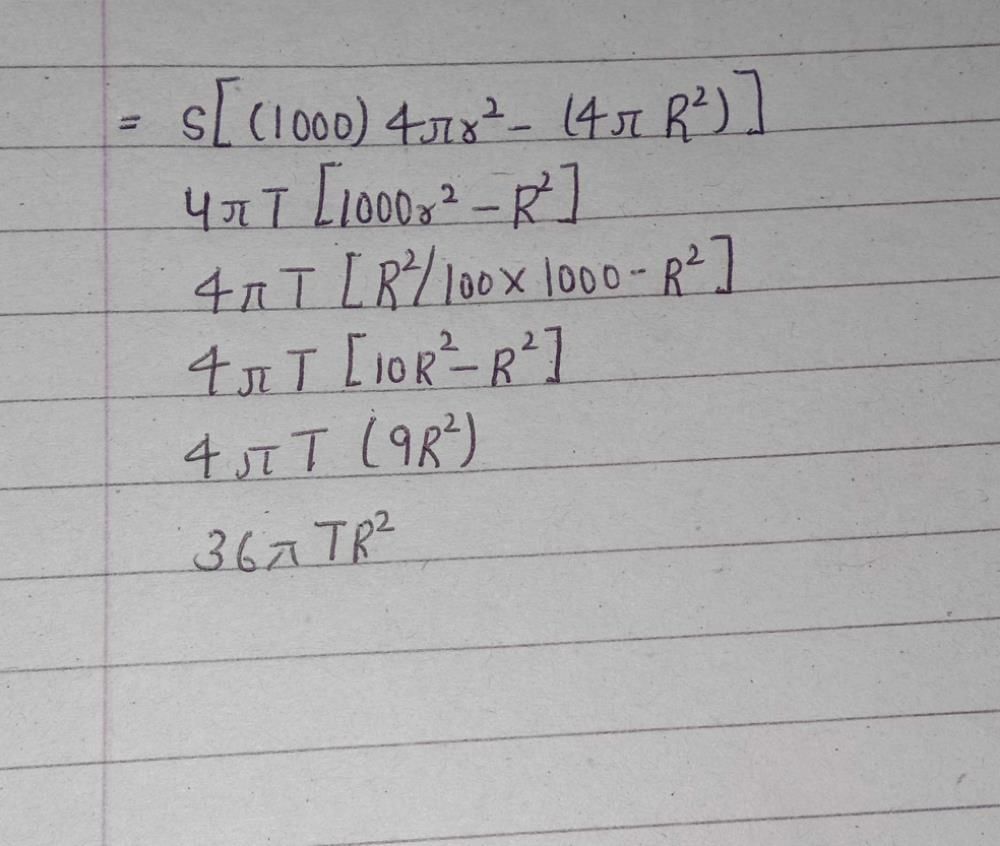 = S[(1000) 4πr² - (4π R²)]
4π T [1000r² - R²]
4π T [R²/100 x 1000 - R²]
4π T [10R² - R²]
4π T (9R²)
36π TR²